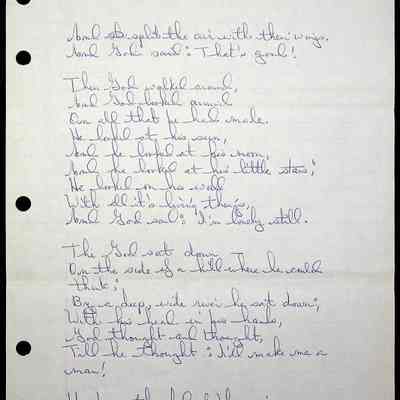 And split the air with their wings.
And God said: That's good!
Then God walked around,
And God looked around
On all that he had made.
He looked at his sun,
And he looked at his moon,
And he looked at his little stars;
He looked on his world
With all it's living things,
And God said: I'm lonely still.
Then God sat down
On the side of a hill where he could
think;
By a deep, wide river he sat down;
With his head in his hands,
God thought and thought,
Till he thought: I'll make me a
man!